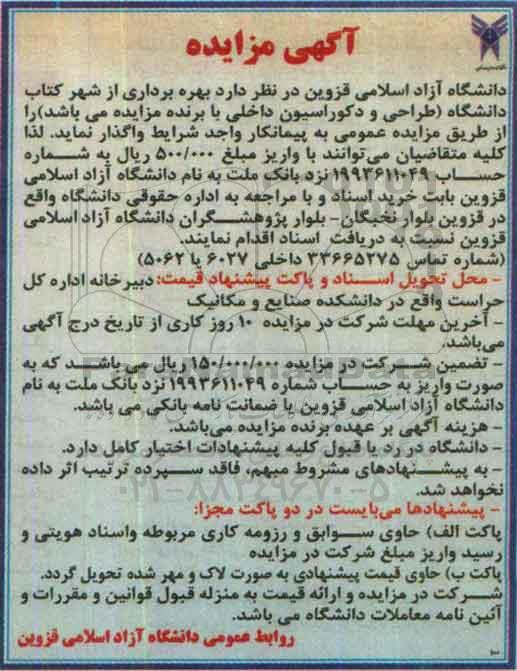 آگهی مزایده
دانشگاه آزاد اسلامی قزوین در نظر دارد بهره برداری از شهر کتاب
دانشگاه (طراحی و دکوراسیون داخلی با برنده مزایده می باشد)را
از طریق مزایده عمومی به پیمانکار واجد شرایط واگذار نماید. لذا
کلیه متقاضیان می‌توانند با واریز مبلغ ۵۰۰/۰۰۰ ریال به شماره
حساب ۱۹۹۳۶۱۱۰۴۹ نزد بانک ملت به نام دانشگاه آزاد اسلامی
قزوین بابت خرید اسناد و با مراجعه به اداره حقوقی دانشگاه واقع
در قزوین بلوار نخبگان- بلوار پژوهشگران دانشگاه آزاد اسلامی
قزوین نسبت به دریافت اسناد اقدام نمایند.
(شماره تماس ۳۳۶۶۵۲۷۵ داخلی ۶۰۲۷ یا ۵۰۶۲)
- محل تحویل اسناد و پاکت پیشنهاد قیمت: دبیرخانه اداره کل
حراست واقع در دانشکده صنایع و مکانیک
- آخرین مهلت شرکت در مزایده ۱۰ روز کاری از تاریخ درج آگهی
می‌باشد.
- تضمین شرکت در مزایده ۱۵۰/۰۰۰/۰۰۰ ریال می باشد که به
صورت واریز به حساب شماره ۱۹۹۳۶۱۱۰۴۹ نزد بانک ملت به نام
دانشگاه آزاد اسلامی قزوین یا ضمانت نامه بانکی می باشد.
- هزینه آگهی بر عهده برنده مزایده می‌باشد.
- دانشگاه در رد یا قبول کلیه پیشنهادات اختیار کامل دارد.
- به پیشنهادهای مشروط مبهم، فاقد سپرده ترتیب اثر داده
نخواهد شد.
- پیشنهادها می‌بایست در دو پاکت مجزا:
پاکت الف) حاوی سوابق و رزومه کاری مربوطه واسناد هویتی و
رسید واریز مبلغ شرکت در مزایده
پاکت ب) حاوی قیمت پیشنهادی به صورت لاک و مهر شده تحویل گردد.
شرکت در مزایده و ارائه قیمت به منزله قبول قوانین و مقررات و
آئین نامه معاملات دانشگاه می باشد.
روابط عمومی دانشگاه آزاد اسلامی قزوین